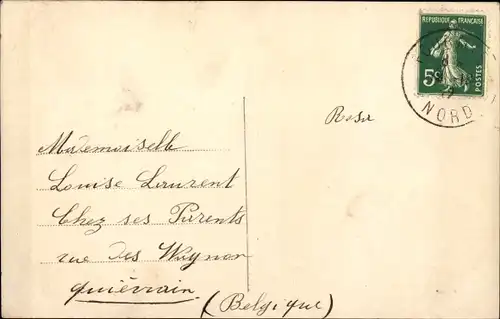 REPUBLIQUE FRANÇAISE
5c
POSTES
NORD
Rosa
Mademoiselle
Louise Laurent
Chez ses Parents
rue des Wagnon
quiévrain
(Belgique)